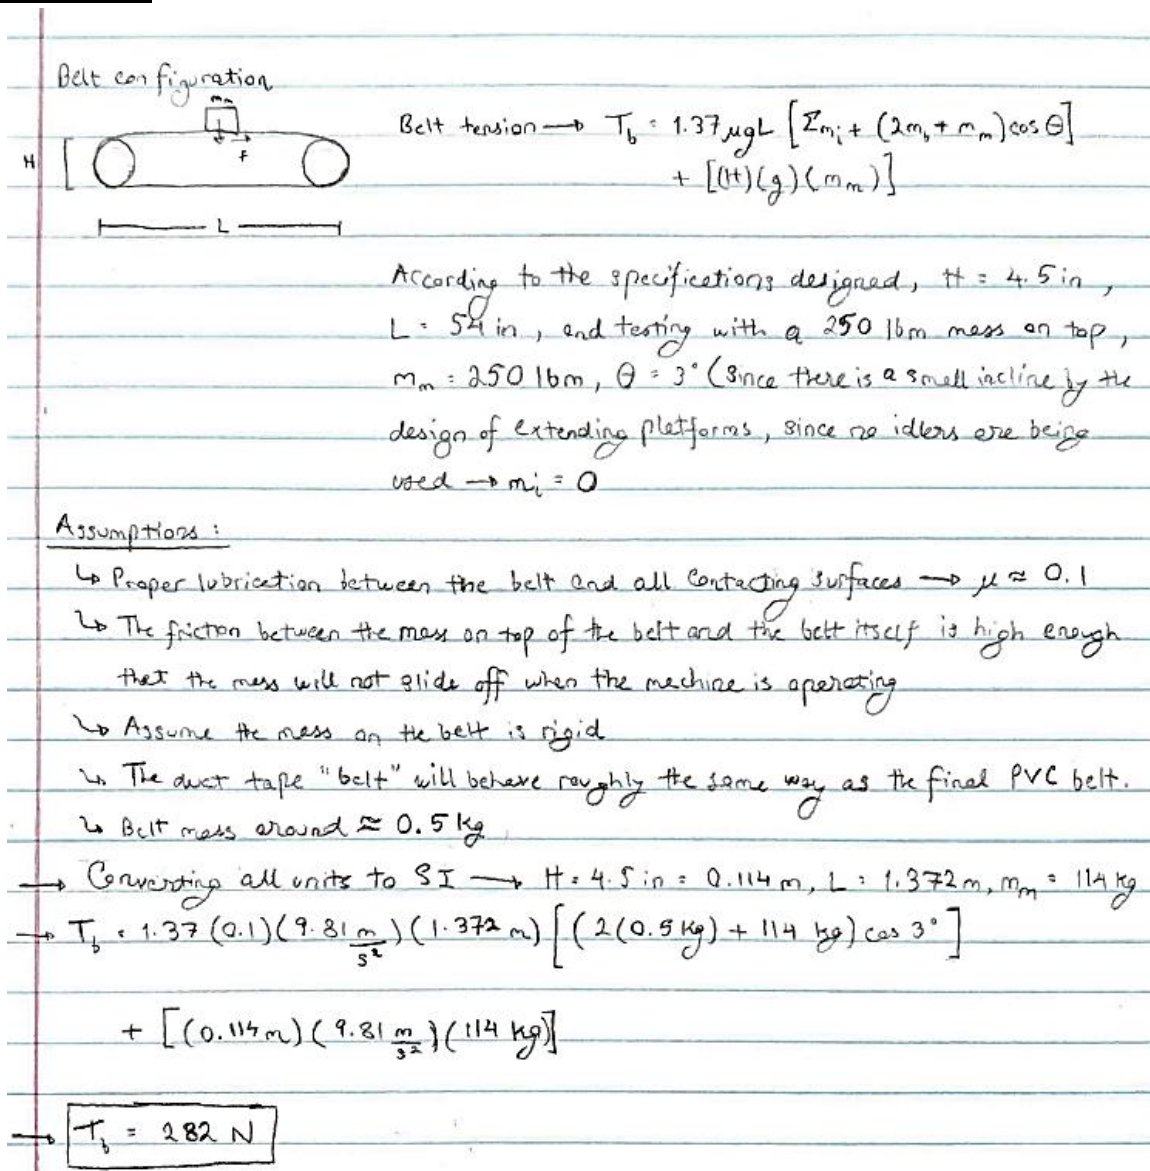 Belt configuration
m_m
H
f
L
Belt tension → T_b = 1.37 μgL [Σm_i + (2m_b + m_m) cos θ]
+ [(H)(g)(m_m)]
According to the specifications designed, H = 4.5 in,
L = 54 in, and testing with a 250 lbm mass on top,
m_m = 250 lbm, θ = 3° (Since there is a small incline by the
design of extending platforms, since no idlers are being
used → m_i = 0
Assumptions:
↳ Proper lubrication between the belt and all contacting surfaces → μ ≈ 0.1
↳ The friction between the mass on top of the belt and the belt itself is high enough
that the mass will not glide off when the machine is operating
↳ Assume the mass on the belt is rigid
↳ The duct tape "belt" will behave roughly the same way as the final PVC belt.
↳ Belt mass around ≈ 0.5 kg
→ Converting all units to SI → H = 4.5 in = 0.114 m, L = 1.372 m, m_m = 114 kg
→ T_b = 1.37 (0.1)(9.81 m/s²)(1.372 m) [(2(0.5 kg) + 114 kg) cos 3°]
+ [(0.114 m)(9.81 m/s²)(114 kg)]
→ T_b = 282 N